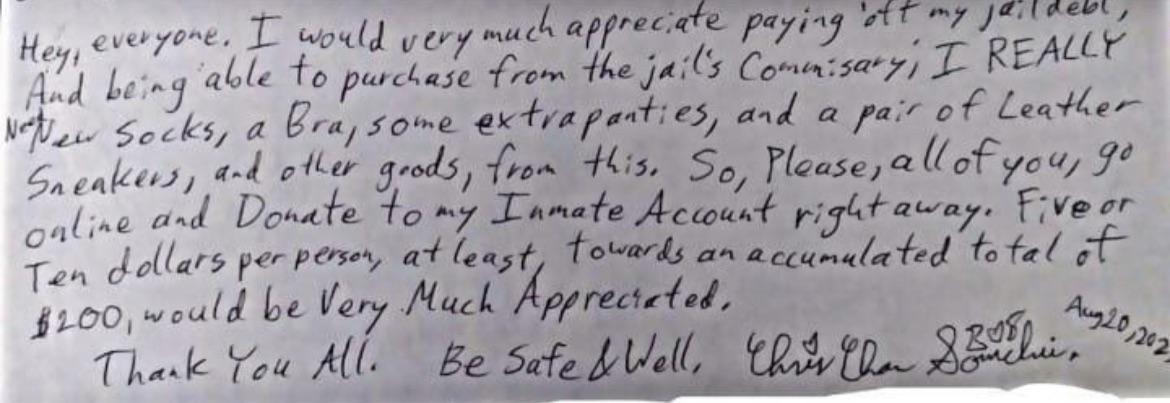 Hey, everyone. I would very much appreciate paying off my jail debt,
And being able to purchase from the jail's Commisary; I REALLY
New Socks, a Bra, some extra panties, and a pair of Leather
Sneakers, and other goods, from this. So, Please, all of you, go
online and Donate to my Inmate Account right away. Five or
Ten dollars per person, at least, towards an accumulated total of
$200, would be Very Much Appreciated.
Thank You All. Be Safe & Well, Chris Chan Aug 20,